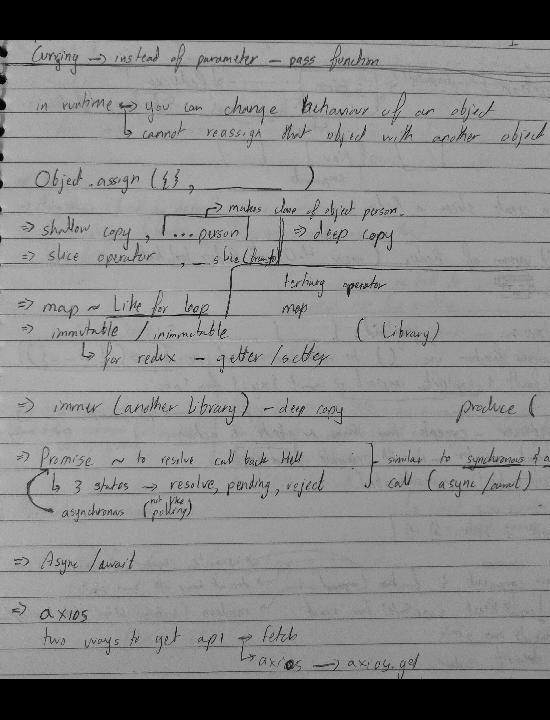 Currying → instead of parameter - pass function
in runtime → you can change behaviour of an object
↳ cannot reassign that object with another object
Object.assign ({}, ______ )
→ makes clone of object person.
⇒ shallow copy, [...person] ⇒ deep copy
⇒ slice operator, _ slice(
tertiary operator
⇒ map ~ Like for loop map
⇒ immutable / inimmutable (Library)
↳ for redux - getter/setter
⇒ immer (another Library) - deep copy produce (
⇒ Promise ~ to resolve call back Hell } similar to synchronous & a
↳ 3 states → resolve, pending, reject call (async/await)
asynchronous (not like polling)
⇒ Async /await
⇒ axios
two ways to get api → fetch
↳ axios → axios.get